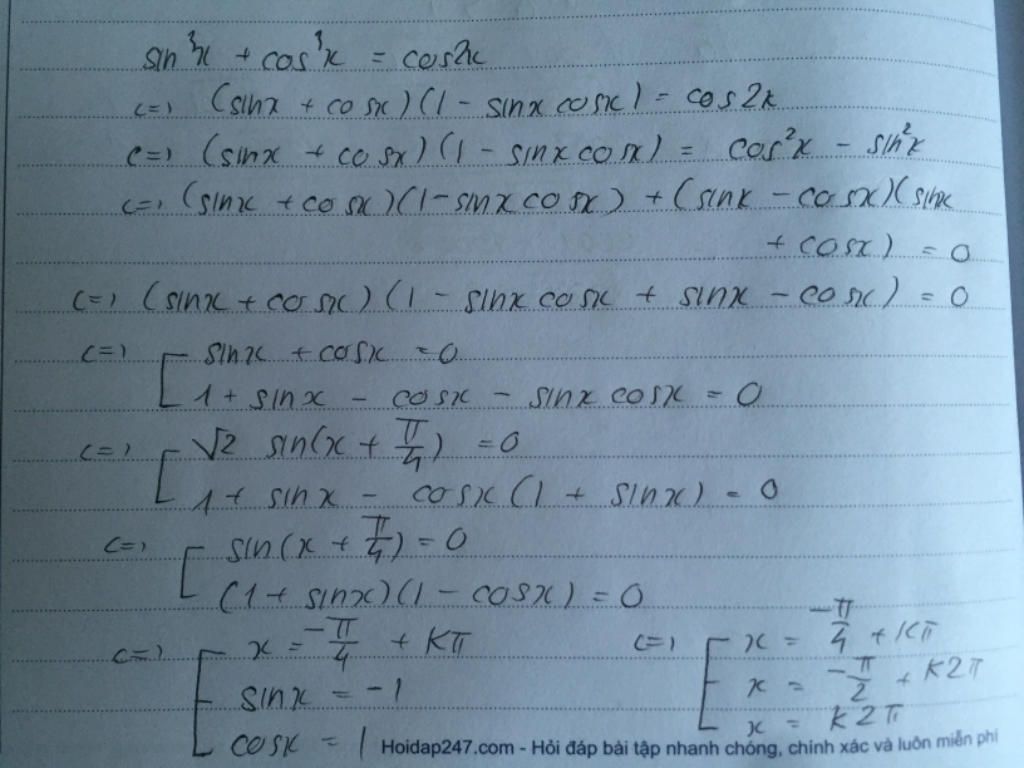 sin³x + cos³x = cos2x
<=> (sinx + cosx)(1 - sinx cosx) = cos2x
<=> (sinx + cosx)(1 - sinx cosx) = cos²x - sin²x
<=> (sinx + cosx)(1 - sinx cosx) + (sinx - cosx)(sinx
+ cosx) = 0
<=> (sinx + cosx)(1 - sinx cosx + sinx - cosx) = 0
<=> [ sinx + cosx = 0
1 + sinx - cosx - sinx cosx = 0
<=> [ √2 sin(x + π/4) = 0
1 + sinx - cosx(1 + sinx) = 0
<=> [ sin(x + π/4) = 0
(1 + sinx)(1 - cosx) = 0
<=> [ x = -π/4 + Kπ
sinx = -1
cosx = 1
<=> [ x = -π/4 + Kπ
x = -π/2 + K2π
x = K2π
Hoidap247.com - Hỏi đáp bài tập nhanh chóng, chính xác và luôn miễn phí